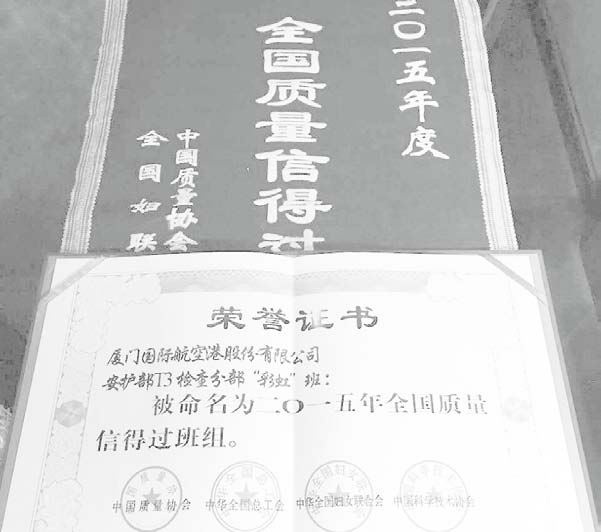 二〇一五年度
全国质量信得过
中国质量协会
全国妇联
荣誉证书
厦门国际航空港股份有限公司
安护部T3检查分部“彩虹”班：
被命名为二〇一五年全国质量
信得过班组。
中国质量协会 中华全国总工会 中华全国妇女联合会 中国科学技术协会